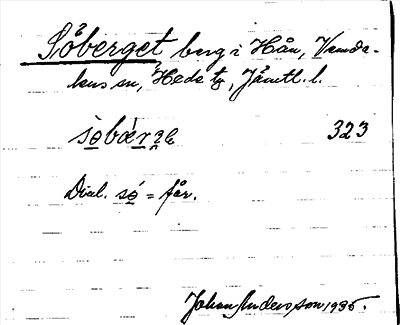 Såberget berg i Hån, Vemda-
lens sn, Heds tg, Jämtl. l.
såbær̥ge 323
Dial. så = får.
Johan Anderson 1935.